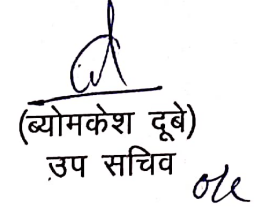 (ब्योमकेश दूबे)
उप सचिव